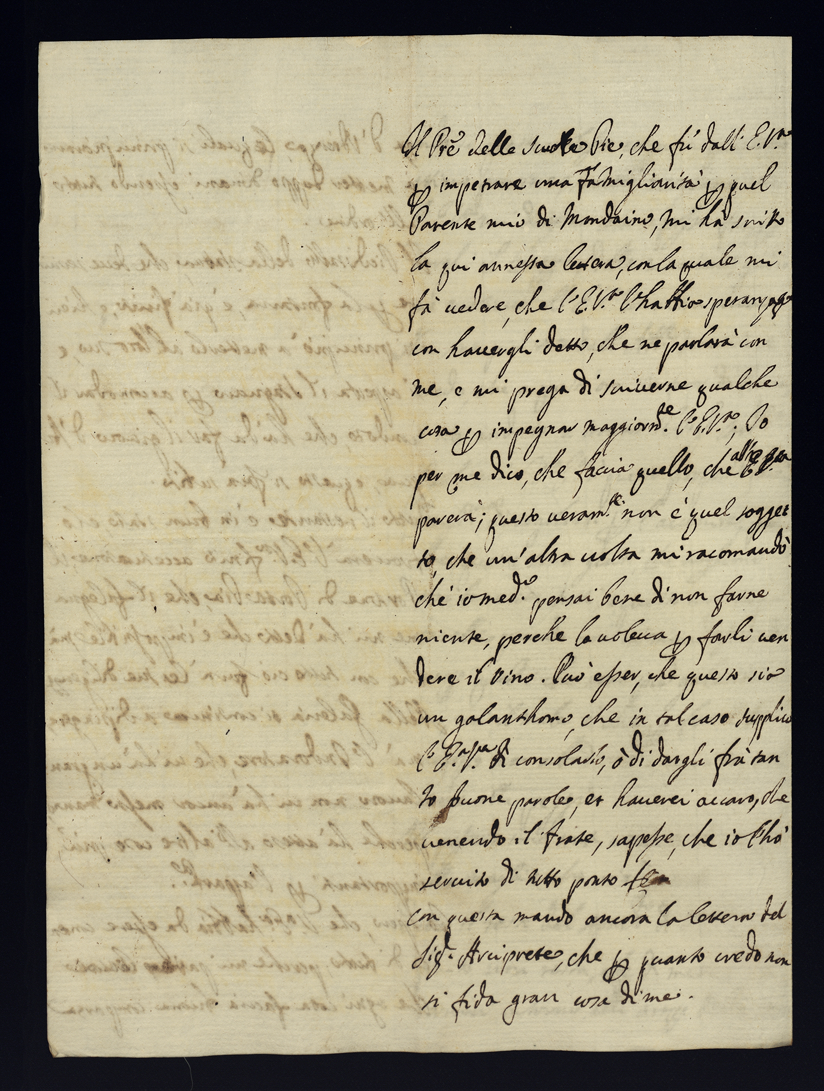 Il Prē delle Scuole Pie, che fù dall' E.V.ra
ꝑ impetrare una Famigliarità ꝑ quel
Parente mio di Mondaino, mi hà scritto
la qui annessa lettera, con la quale mi
fà vedere, che l'E.V.ra l'habbia speranzato
con havergli detto, che ne parlarà con
me, e mi prega di scriverne qualche
cosa ꝑ impegnar maggiorm.te l'E.V.ra; Io
per me dico, che faccia quello, che all'E.V.ra
parerà; questo veram.te non è quel sogget
to, che un'altra volta mi racomandò
che io med.o pensai bene di non farne
niente, perche la voleva ꝑ farli ven
dere il vino. Può esser, che questo sia
un galanthomo, che in tal caso supplico
l'E.V.ra di consolarlo, ò di dargli frà tan
to buone parole, et haverei accaro, che
venendo il frate, sapesse, che io l'hò
servito di tutto ponto
con questa mando ancora la lettera del
Sig.r Arciprete, che ꝑ quanto credo non
si fida gran cosa di me.